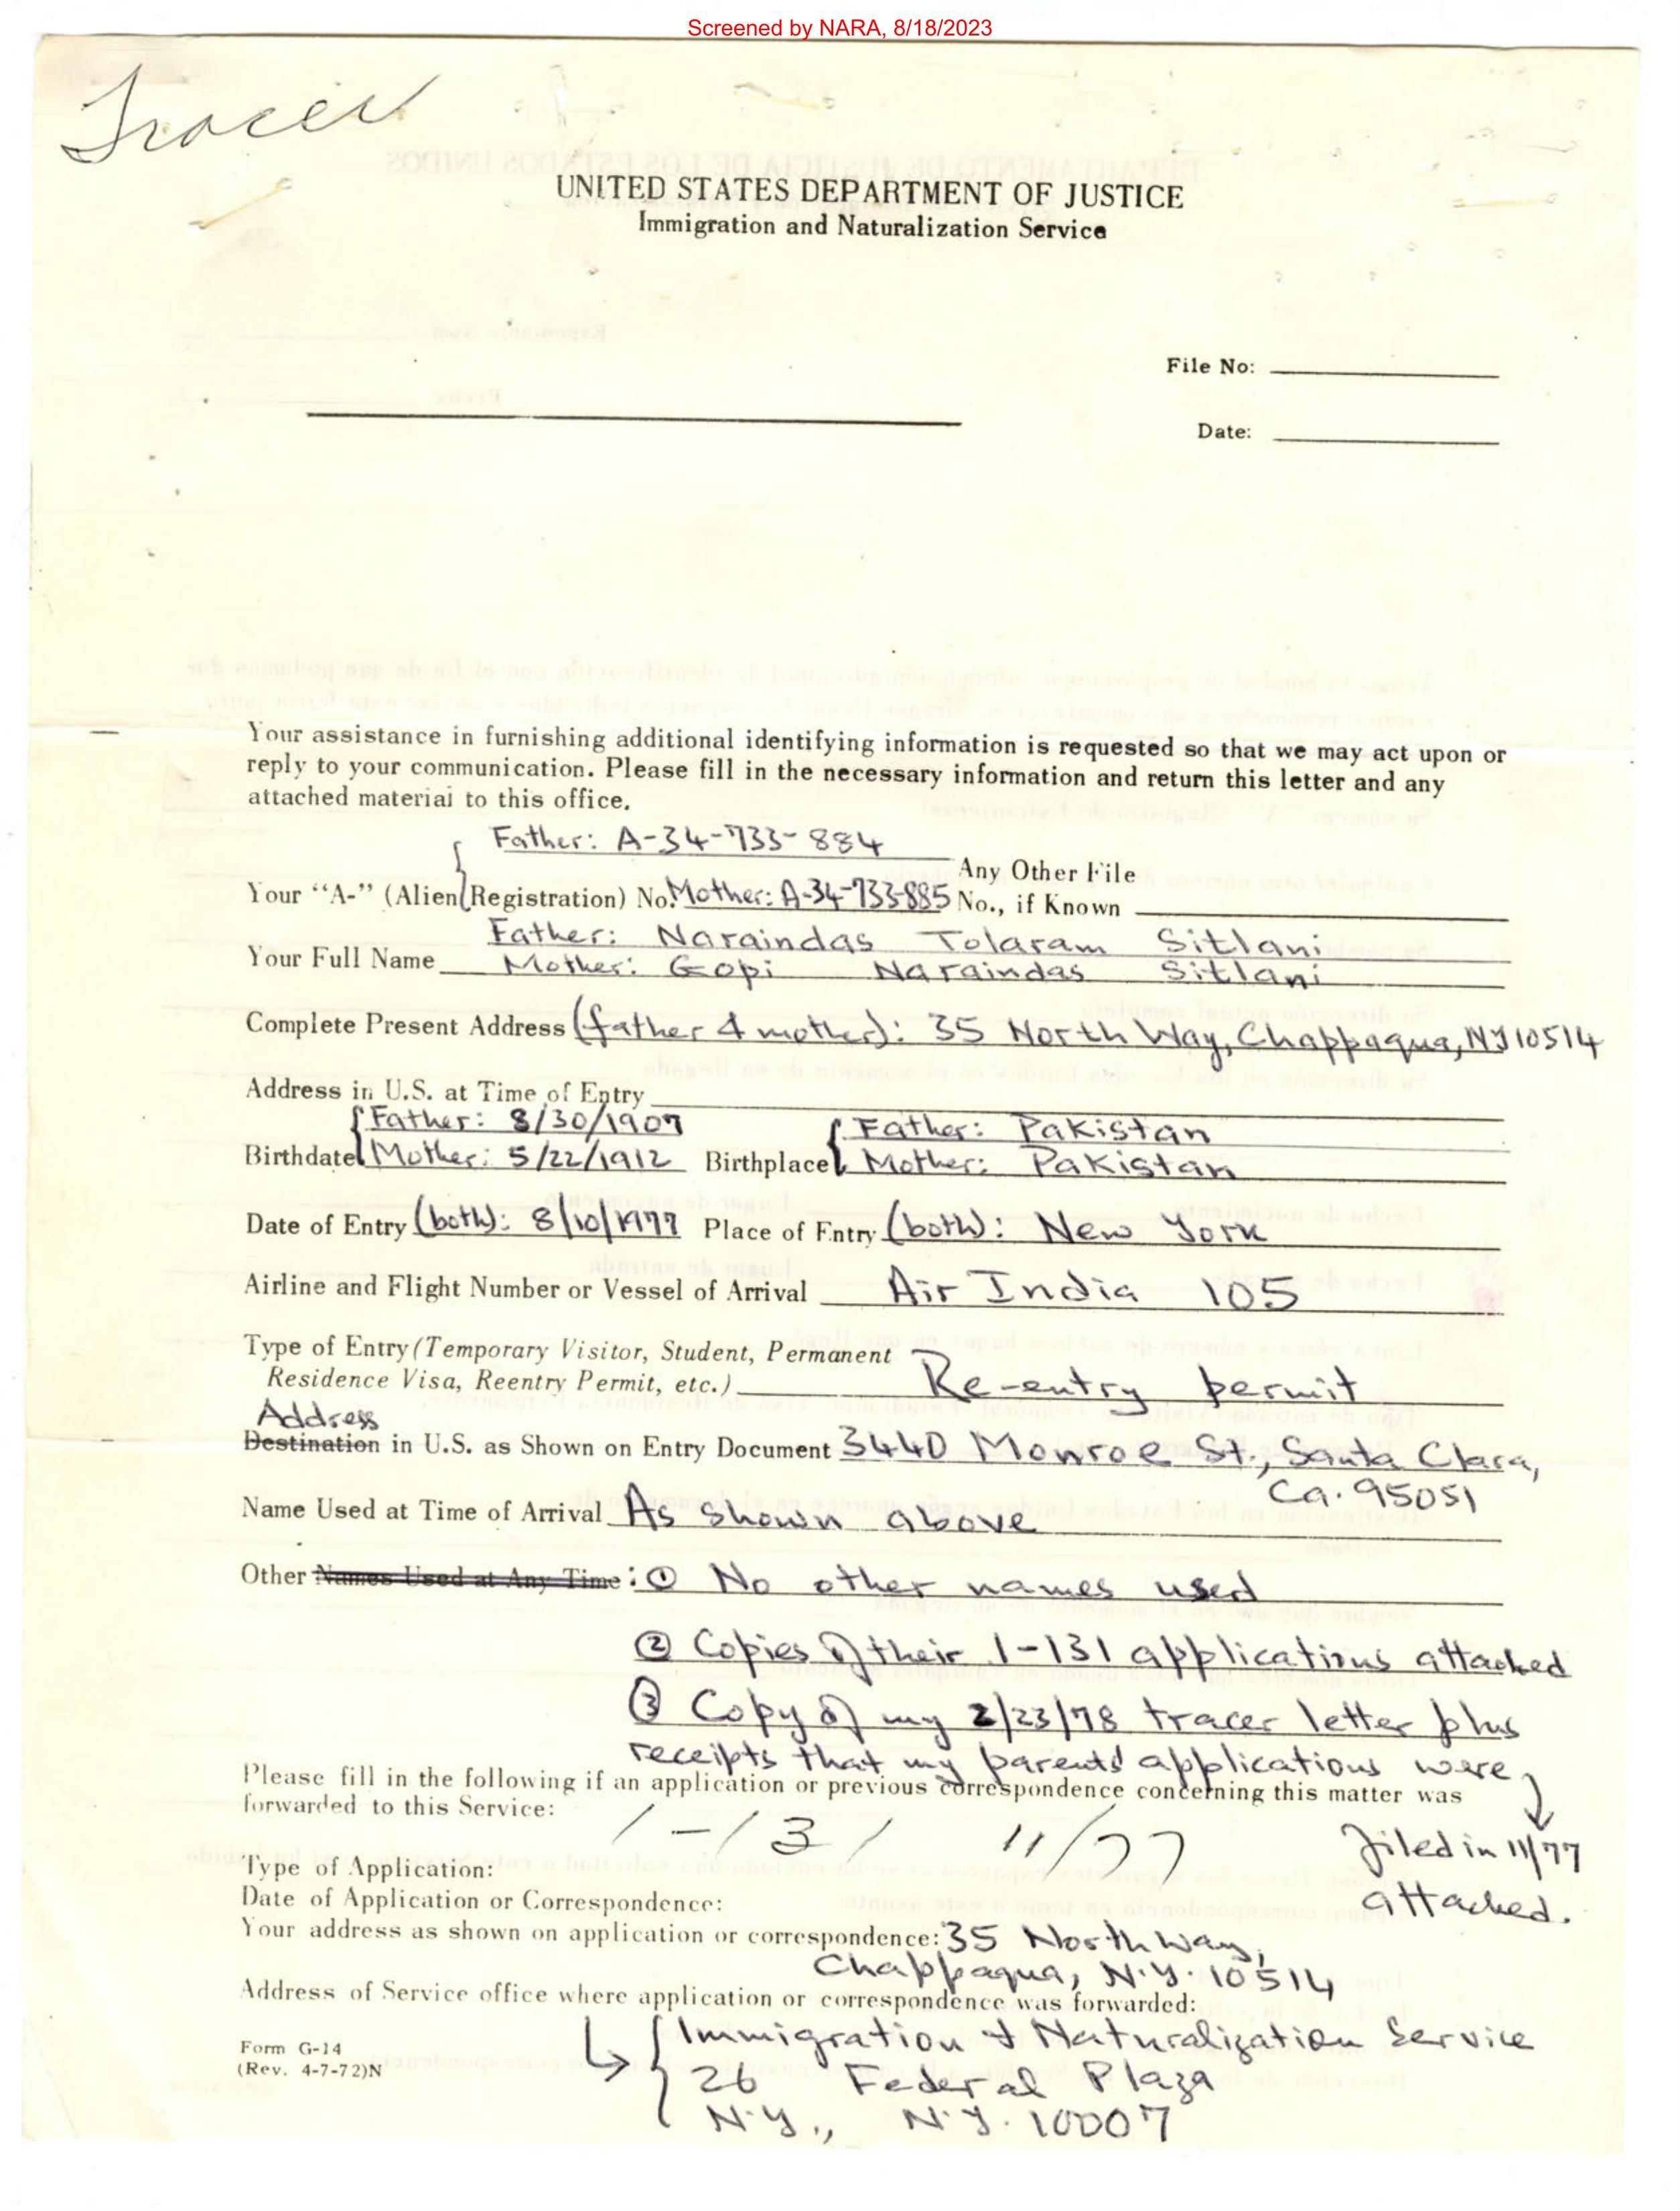 Screened by NARA, 8/18/2023
Tracer
UNITED STATES DEPARTMENT OF JUSTICE
Immigration and Naturalization Service
File No:
Date:
Your assistance in furnishing additional identifying information is requested so that we may act upon or
reply to your communication. Please fill in the necessary information and return this letter and any
attached material to this office.
Father: A-34-733-884
Your "A-" (Alien Registration) No. Mother: A-34-733-885 Any Other File No., if Known
Father: Naraindas Tolaram Sitlani
Your Full Name Mother: Gopi Naraindas Sitlani
Complete Present Address (father & mother): 35 North Way, Chappaqua, NY 10514
Address in U.S. at Time of Entry
Father: 8/30/1907 Father: Pakistan
Birthdate Mother: 5/22/1912 Birthplace Mother: Pakistan
Date of Entry (both): 8/10/1977 Place of Entry (both): New York
Airline and Flight Number or Vessel of Arrival Air India 105
Type of Entry (Temporary Visitor, Student, Permanent
Residence Visa, Reentry Permit, etc.) Re-entry permit
Address
Destination in U.S. as Shown on Entry Document 3440 Monroe St., Santa Clara,
Ca. 95051
Name Used at Time of Arrival As shown above
Other Names Used at Any Time: ① No other names used
② Copies of their I-131 applications attached
③ Copy of my 2/23/78 tracer letter plus
receipts that my parents' applications were
Please fill in the following if an application or previous correspondence concerning this matter was
forwarded to this Service:
filed in 11/77
attached.
I-131 11/77
Type of Application:
Date of Application or Correspondence:
Your address as shown on application or correspondence: 35 North Way,
Chappaqua, N.Y. 10514
Address of Service office where application or correspondence was forwarded:
Immigration & Naturalization Service
26 Federal Plaza
N.Y., N.Y. 10007
Form G-14
(Rev. 4-7-72)N